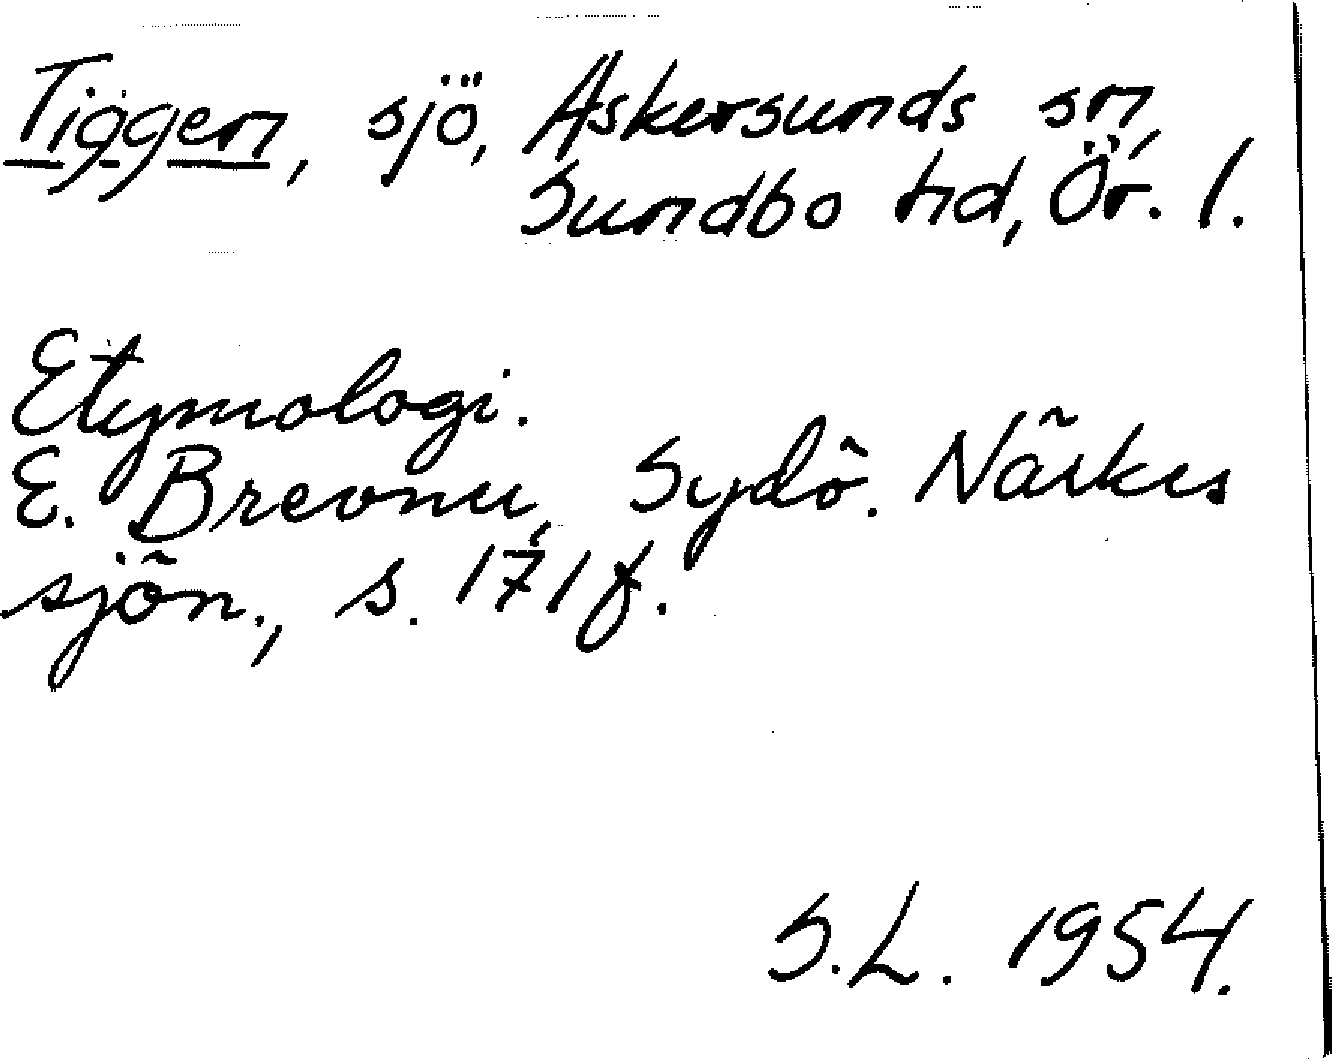 Tiggen, sjö, Askersunds sn,
Sundbo hd, Ör. l.
Etymologi.
E. Brevner, Sydö. Närkes
sjön., s. 171 f.
S.L. 1954.